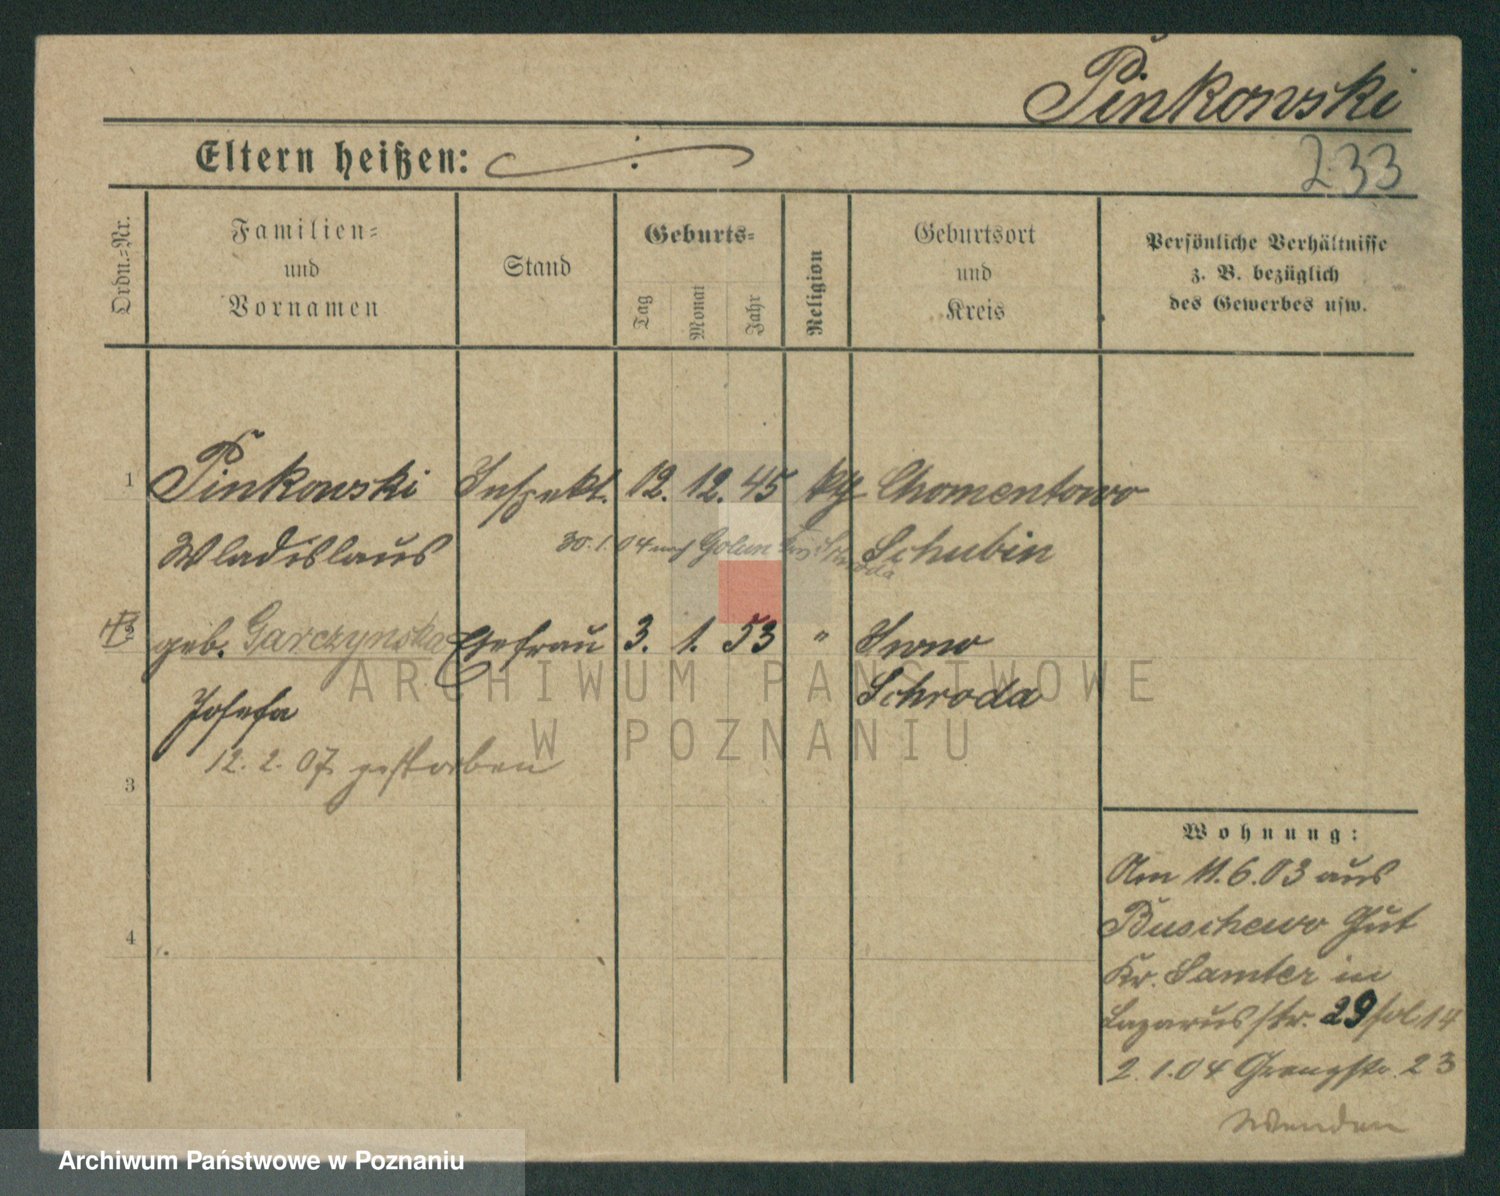 Pinkowski
Eltern heißen:
233
Ordn.-Nr.
Familien-
und
Vornamen
Stand
Geburts-
Tag
Monat
Jahr
Religion
Geburtsort
und
Kreis
Persönliche Verhältnisse
z. B. bezüglich
des Gewerbes usw.
1 Pinkowski Inspekt. 12. 12. 45 kth Chomentowo
Wladislaus Schubin
30.1.04 nach Golun Schroda
geb. Garczynska Ehefrau 3. 1. 53 " Iwno
Josefa Schroda
12. 2. 07 gestorben
3
4
Wohnung:
Am 11.6.03 aus
Buschewo Gut
Kr. Samter in
Lazarusstr. 29 14
2.1.04 Grenzstr. 23
Wenden
ARCHIWUM PAŃSTWOWE
W POZNANIU
Archiwum Państwowe w Poznaniu